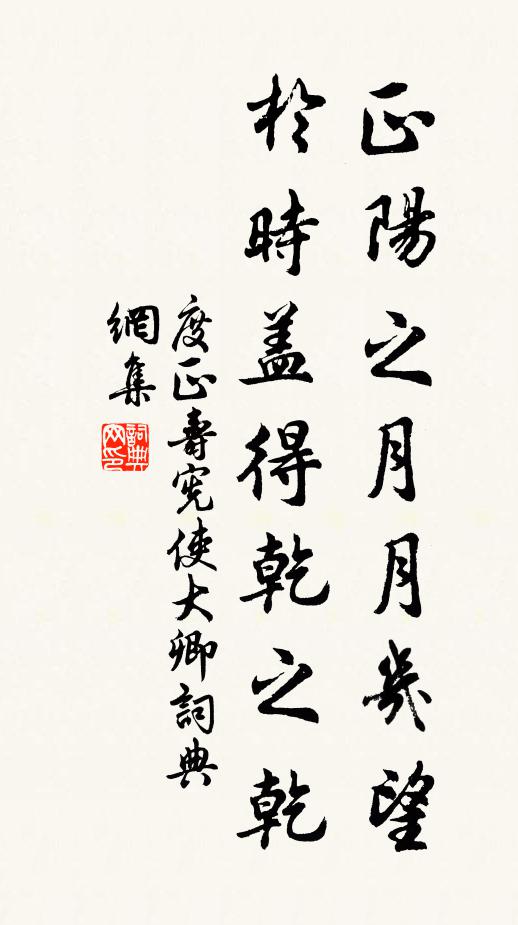 正陽之月月幾望
於時蓋得乾之乾
度正壽憲使大卿詞典
網集
詞典網印